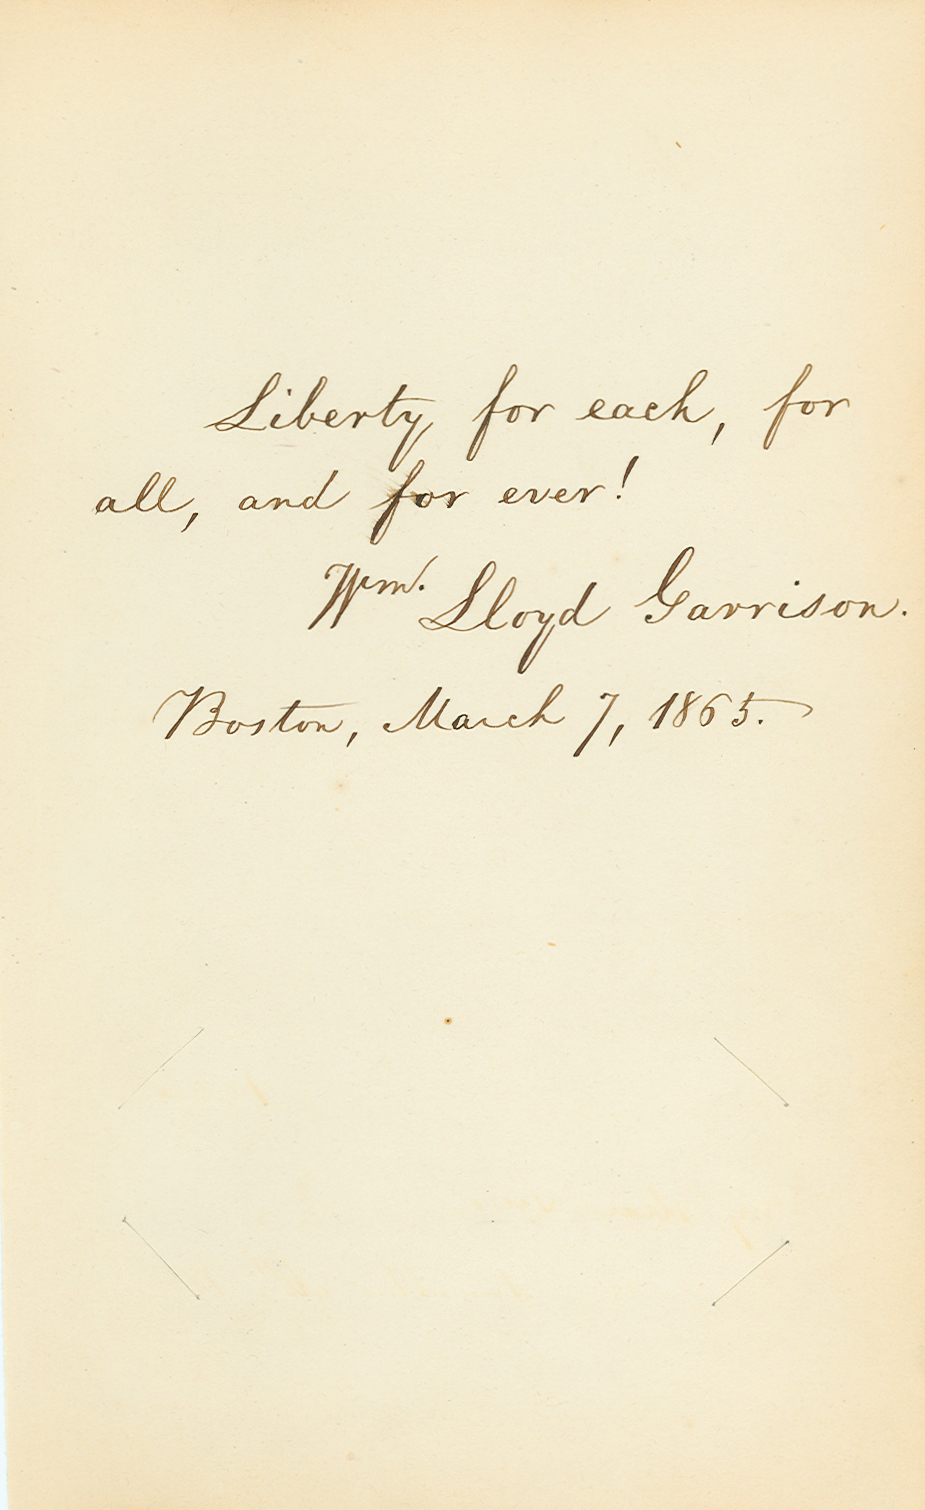 Liberty for each, for
all, and for ever!
Wm. Lloyd Garrison.
Boston, March 7, 1865.